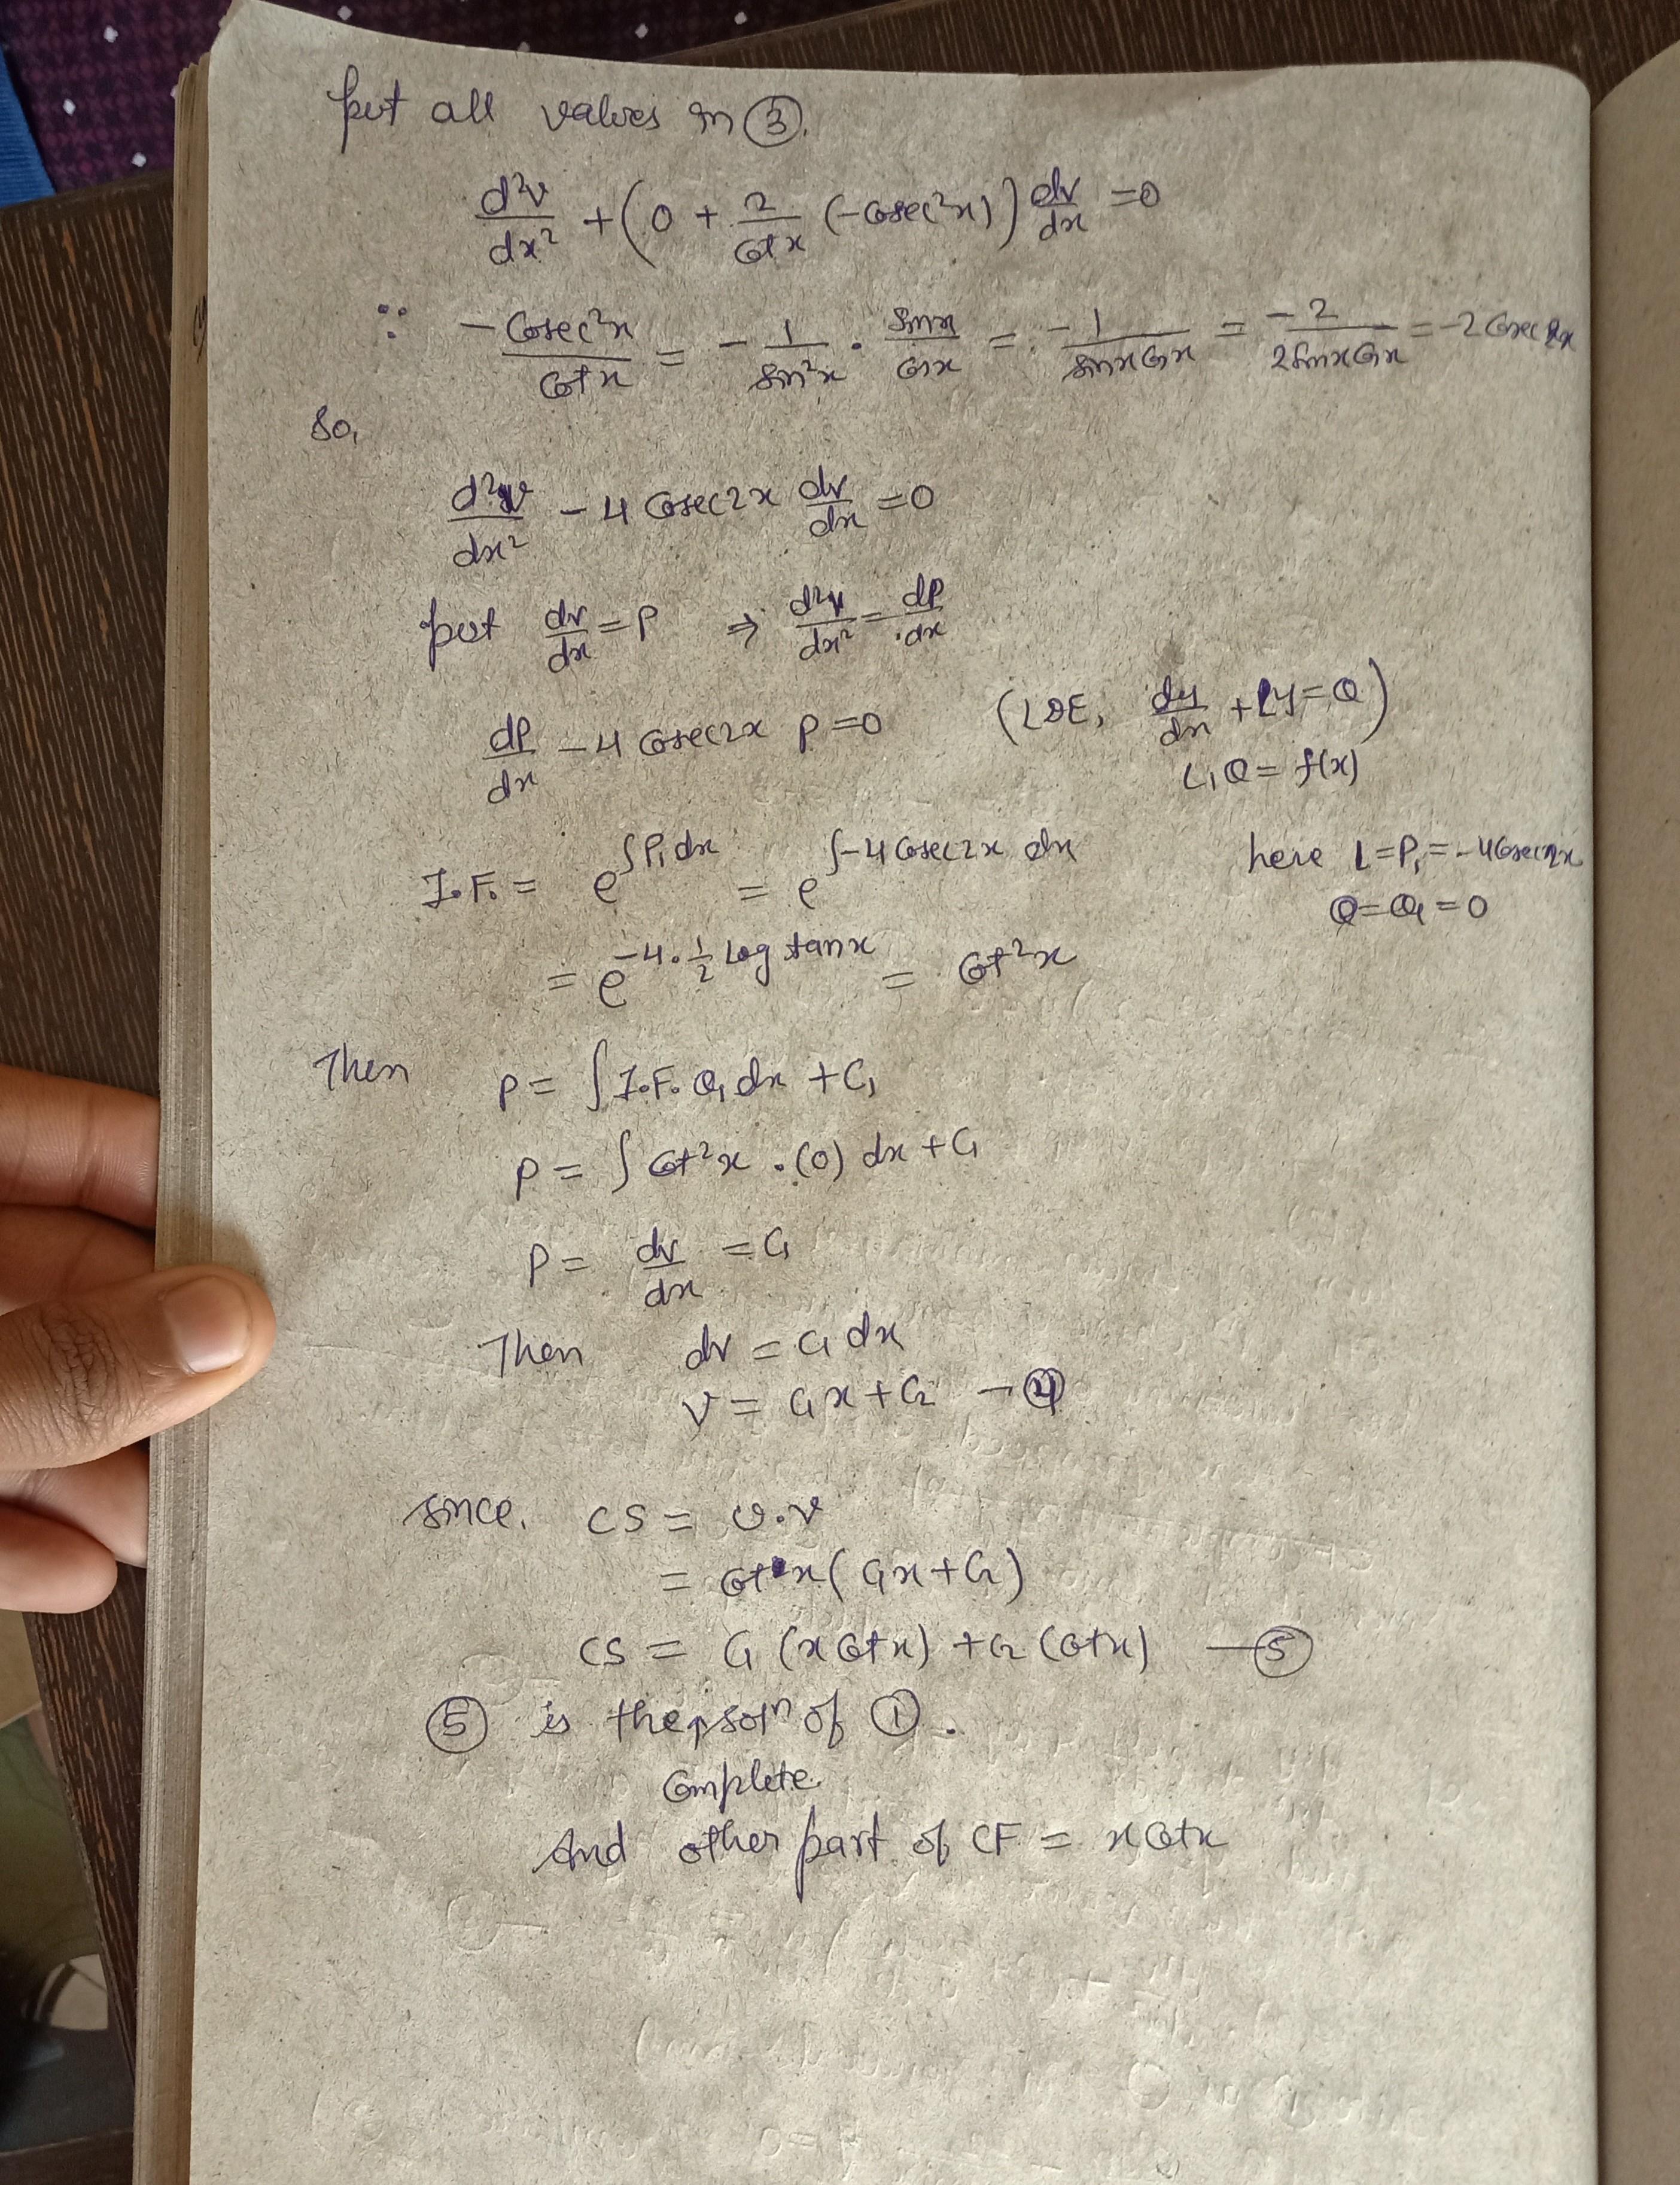 put all values in ③.
d²v/dx² + (0 + 2/cotx (-cosec²x)) dv/dx = 0
∵ -cosec²x/cotx = -1/sin²x · sinx/cosx = -1/sinxcosx = -2/2sinxcosx = -2cosec2x
So,
d²v/dx² - 4 cosec2x dv/dx = 0
put dv/dx = P ⇒ d²v/dx² = dP/dx
dP/dx - 4 cosec2x P = 0 (LDE, dy/dx + Ly = Q)
L, Q = f(x)
I.F. = e^∫P₁dx = e^∫-4cosec2x dx here L = P₁ = -4cosec2x
Q = Q₁ = 0
= e^-4·½ log tanx = cot²x
Then P = ∫ I.F. Q₁ dx + C₁
P = ∫ cot²x · (0) dx + C₁
P = dv/dx = C₁
Then dv = C₁ dx
v = C₁x + C₂ — ④
since, CS = u.v
= cotx (C₁x + C₂)
CS = C₁ (x cotx) + C₂ (cotx) — ⑤
⑤ is the solⁿ of ①.
Complete
And other part of CF = x cotx